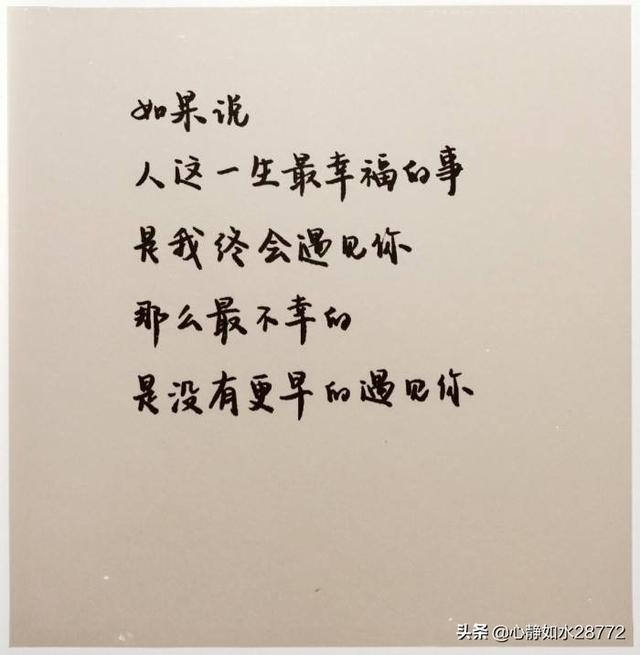 如果说
人这一生最幸福的事
是我终会遇见你
那么最不幸的
是没有更早的遇见你
头条 @心静如水28772